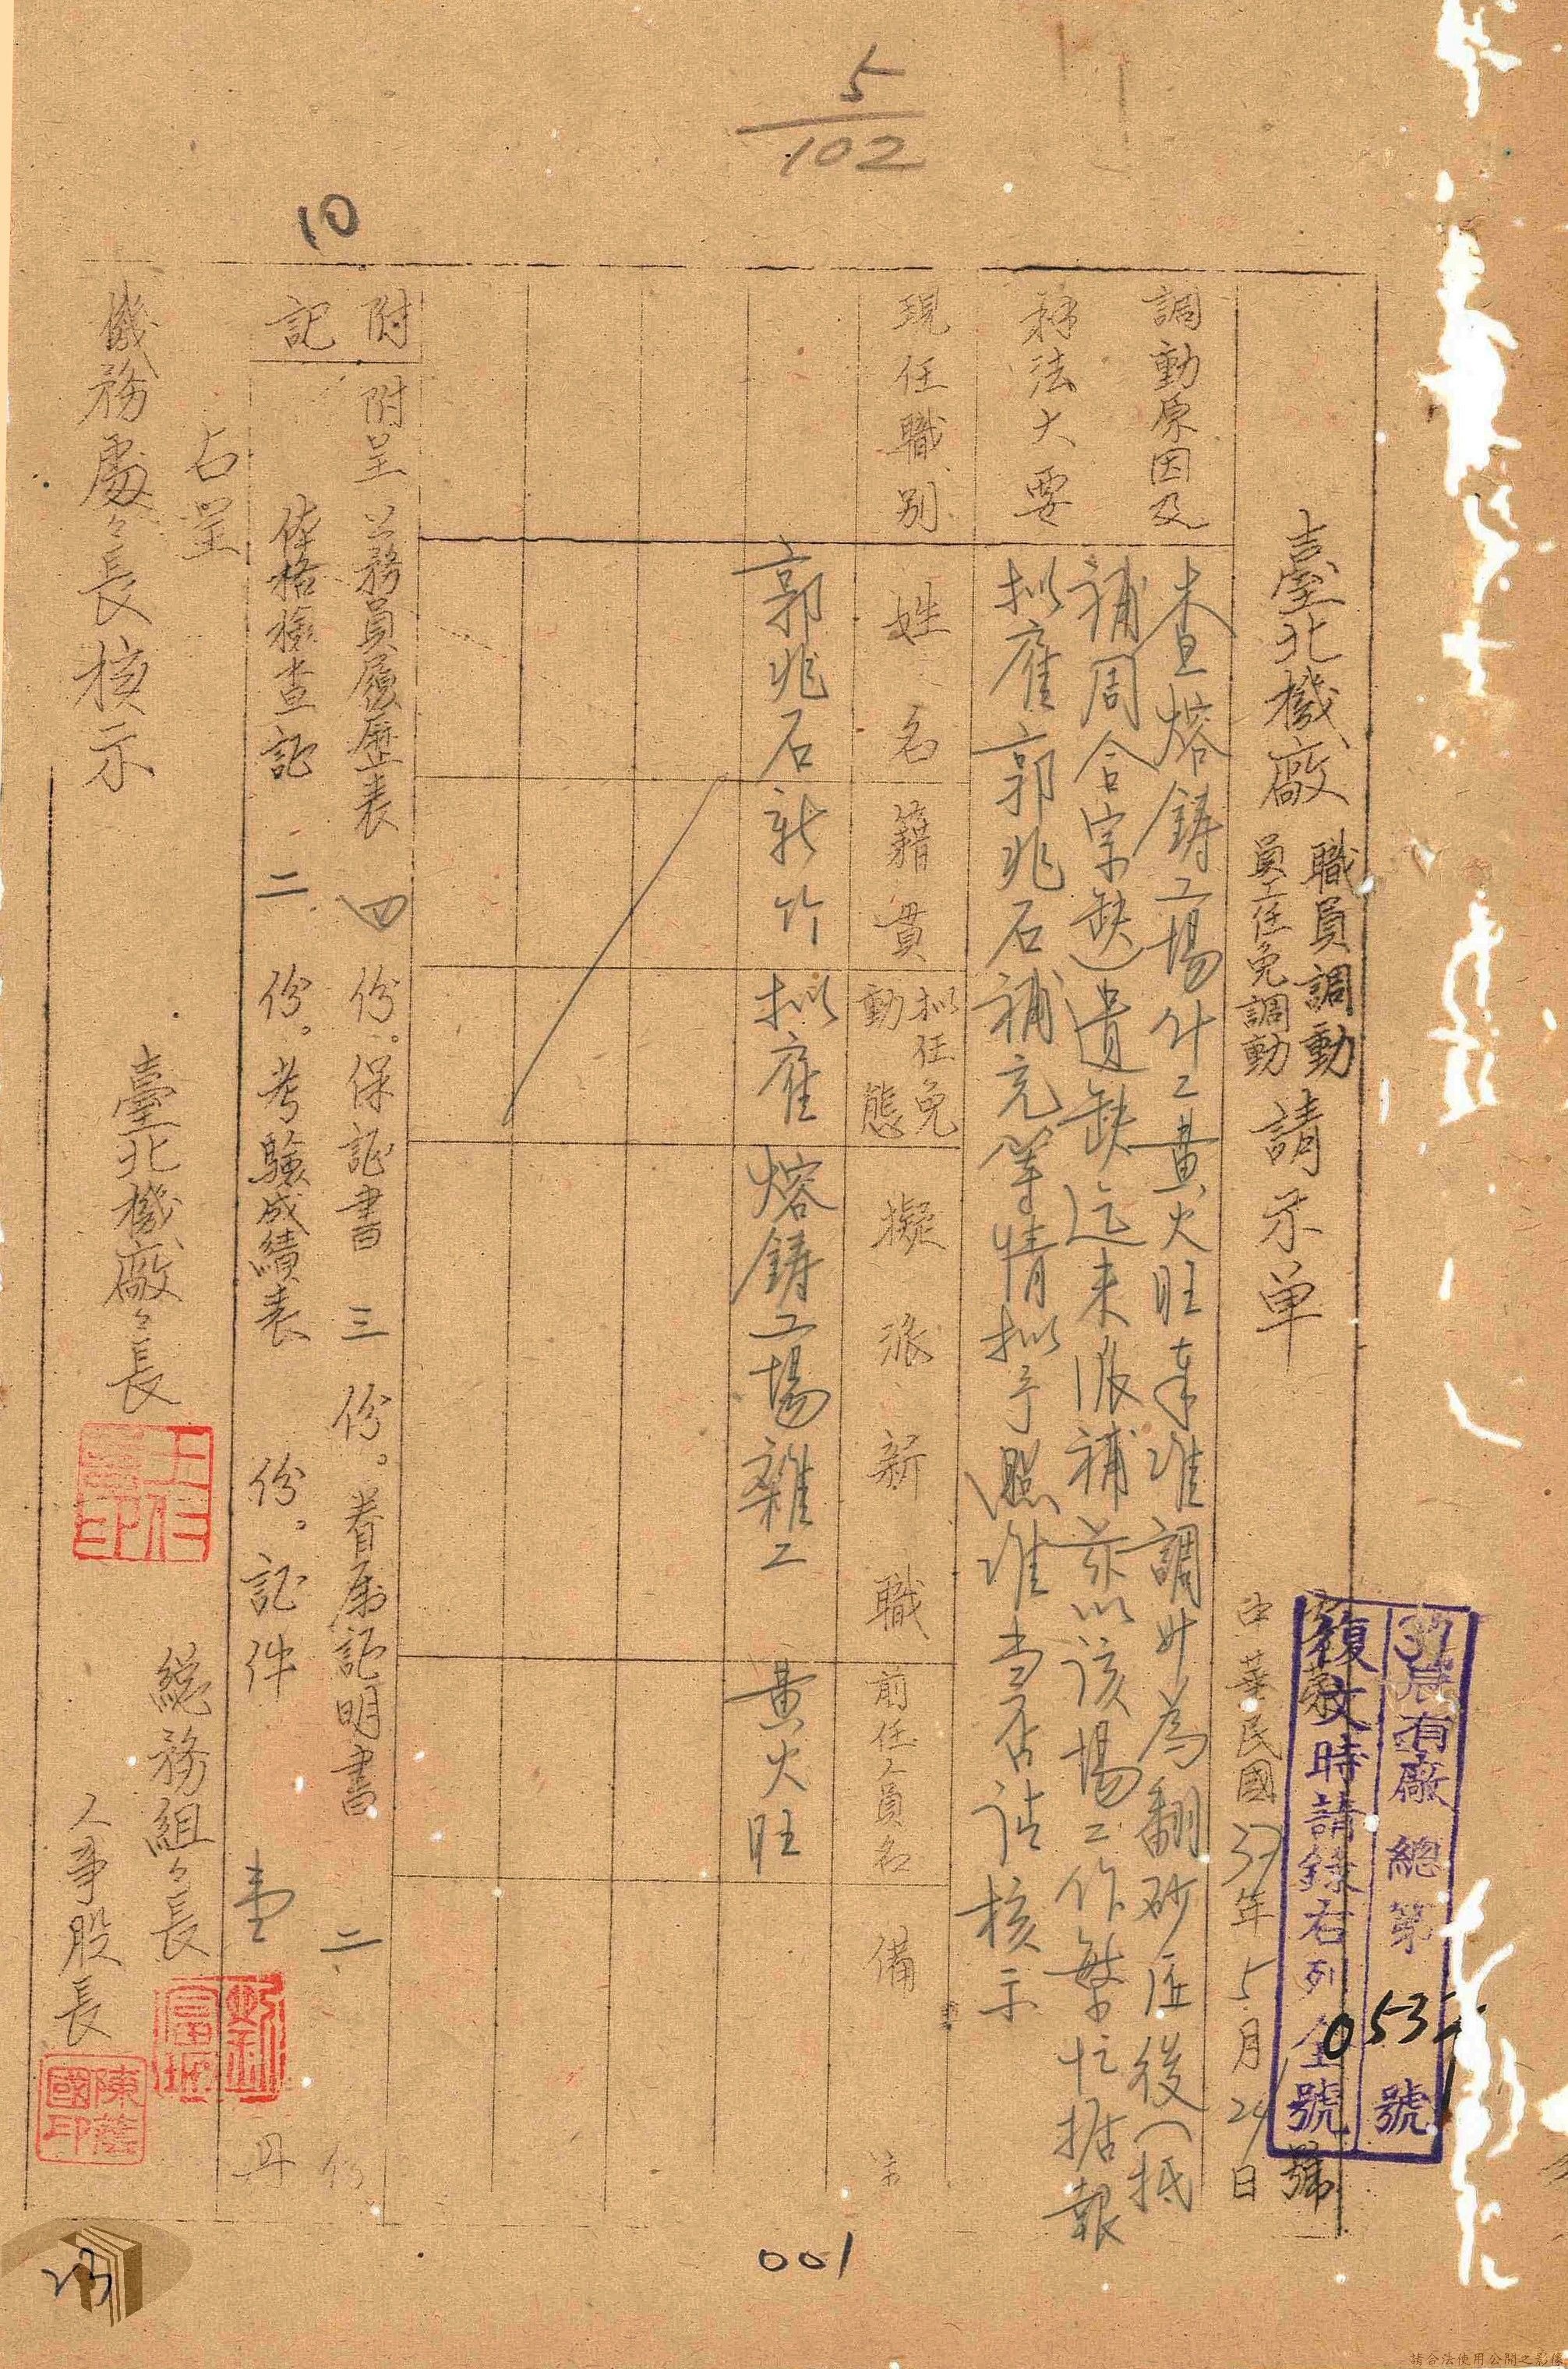 5
102
10
37辰有廠總第0532號
復文時請錄右列全號
號
臺北機廠
職員調動
員工任免調動
請示单
中華民國37年5月24日
調動原因及
辦法大要
查熔鑄工場什工黃火旺奉准調升為翻砂匠後(抵
補周合宗缺)遺缺迄未派補茲以該場工作繁忙據報
拟雇郭兆石補充等情拟予照准当否请核示
現任職別
姓名
籍貫
拟任免
動態
擬派新職
前任人員名
備考
郭兆石
新竹
拟雇
熔鑄工場雜工
黃火旺
附記
附呈公務員履歷表四份。保証書三份。眷屬証明書二份
体格檢查証二份。考驗成績表 份。証件壹冊
右呈
機務處々長核示
臺北機廠々長
總務組々長
人事股長
陳蔭國印
001
23
請合法使用公開之影像